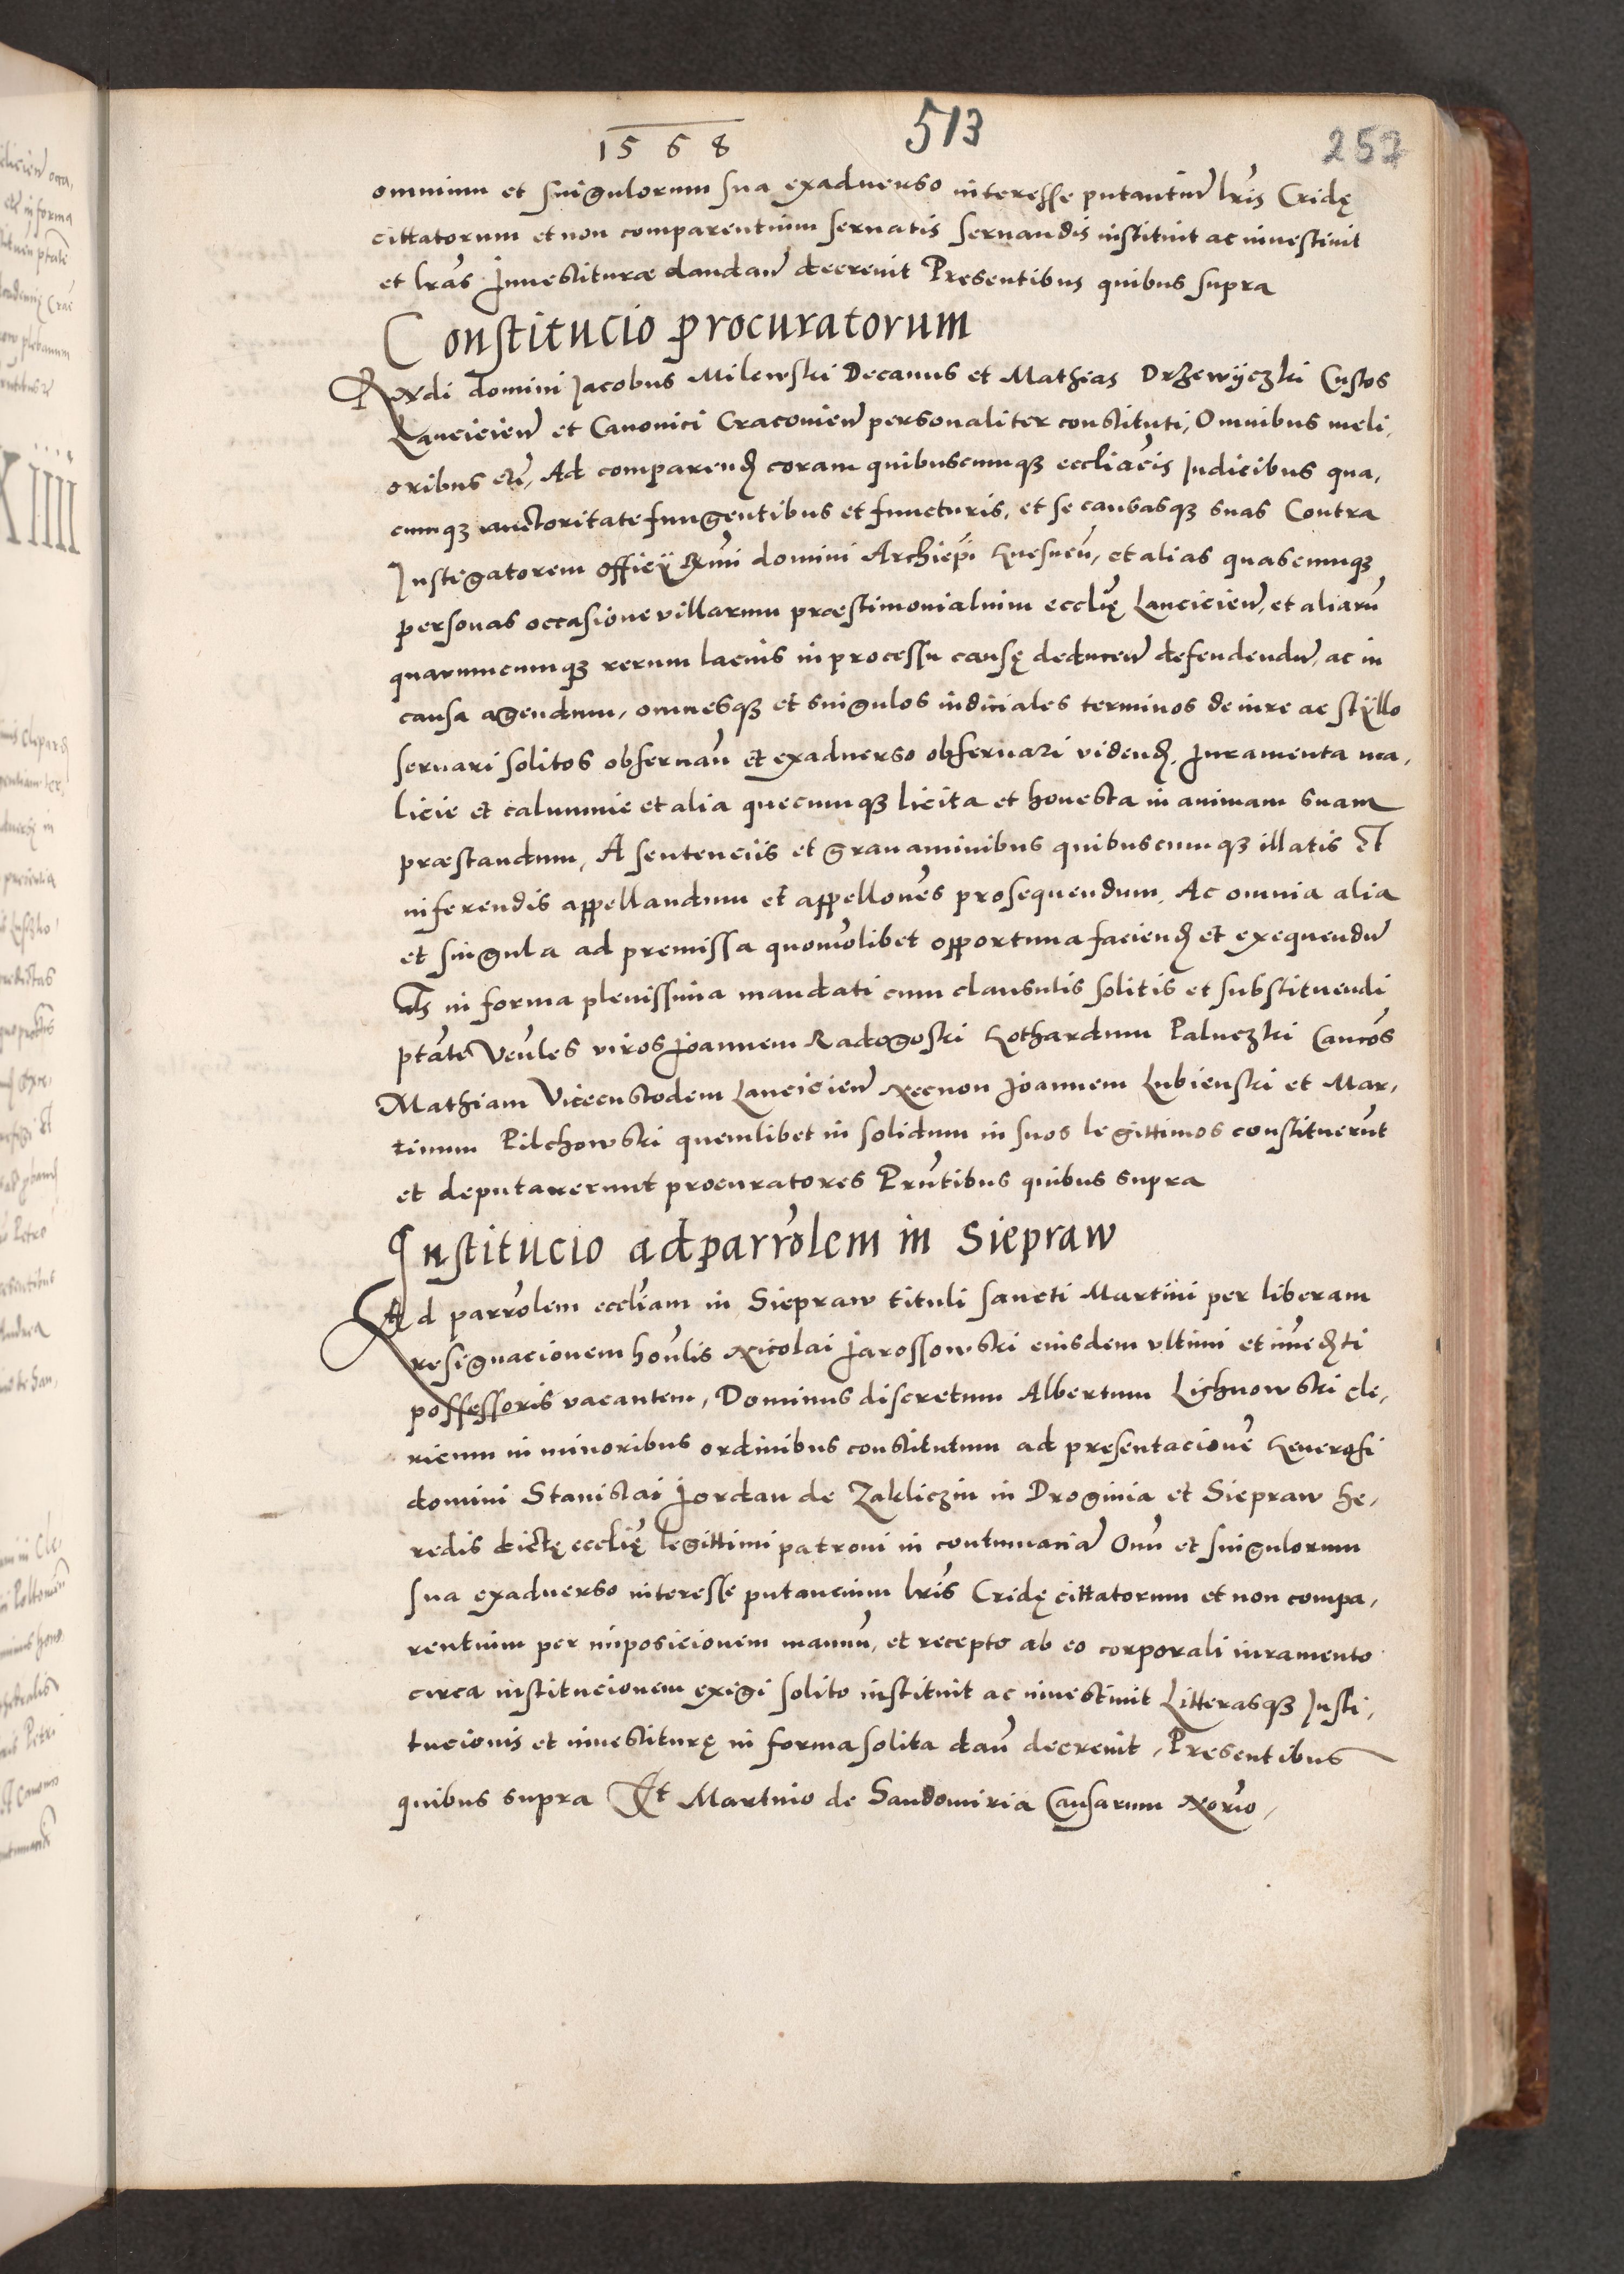 1568
513
257
omnium et singulorum sua exadverso interesse putantiū lris Cridę
cittatorum et non comparentium servatis servandis instituit ac investivit
et lras Investituræ dandas decrevit Presentibus quibus supra
Constitucio procuratorum
Rndi domini Jacobus Milewski Decanus et Mathias Drzewyczki Custos
Lancicien et Canonici Cracovien personaliter constituti, Omnibus meli,
oribus etc, Ad comparend coram quibuscumq ecclīacis Judicibus qua,
cumq auctoritate fungentibus et functuris, et se causasq suas Contra
Instigatorem officy Rmi domini Archiepi Gnesnen, et alias quascumq
personas occasione villarum præstimonialium ecclīę Lancicien, et aliarū
quarumcumq rerum lacius in processu causę deducen defendendū, ac in
causa agendum, omnesq et singulos iudiciales terminos de iure ac styllo
servari solitos observan et exadverso observari videnđ. Juramenta ma,
licie et calumnie et alia quecumq licita et honesta in animam suam
præstandum, A sentenciis et gravaminibus quibuscumq illatis Et
inferendis appellandum et appellones prosequendum, Ac omnia alia
et singula ad premissa quomolibet opportuna faciend et exequendū
in forma plenissima mandati cum clausulis solitis et substituendi
ptate Venles viros Joannem Radogoski Gothardum Paluczki Cancos
Mathiam Vicecustodem Lancicien Necnon Joannem Lubienski et Mar,
tinum Pilchowski quemlibet in solidum in suos legittimos constituerūt
et deputaverunt procuratores Prntibus quibus supra
Institucio ad parrolem in Siepraw
Ad parrolem eccliam in Siepraw tituli sancti Martini per liberam
resignacionem honlis Nicolai Jarossowski eiusdem ultimi et immedti
possessoris vacantem, Dominus discretum Albertum Lichnowski cle,
ricum in minoribus ordinibus constitutum ad presentacionē Generosi
domini Stanislai Jordan de Zakliczin in Droginia et Siepraw he,
redis dictę ecclię legittimi patroni in contumacia Oniū et singulorum
sua exadverso interesse putancium lris Cridę cittatorum et non compa,
rentium per imposicionem manuū, et recepto ab eo corporali iuramento
circa institucionem exigi solito instituit ac investivit Litterasq Insti,
tucionis et investiturę in forma solita dan decrevit, Presentibus
quibus supra Et Martino de Sandomiria Causarum Norio,